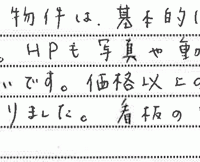 物件は、基本的に
。HPも写真や動
いです。価格以上の
りました。看板の